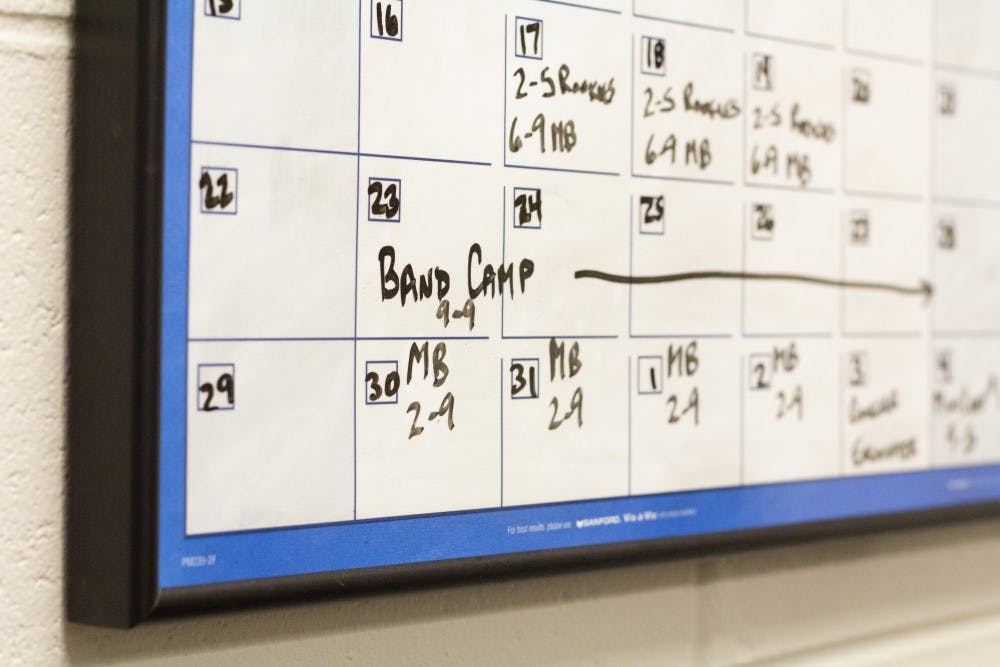 15
16
17
2-5 Rookies
6-9 MB
18
2-5 Rookies
6-9 MB
19
2-5 Rookies
6-9 MB
20
21
22
23
24
25
26
27
28
BAND CAMP
9-9
29
30 MB
2-9
31 MB
2-9
1 MB
2-9
2 MB
2-9
3
4
For best results, please use SANFORD. Vis-à-Vis